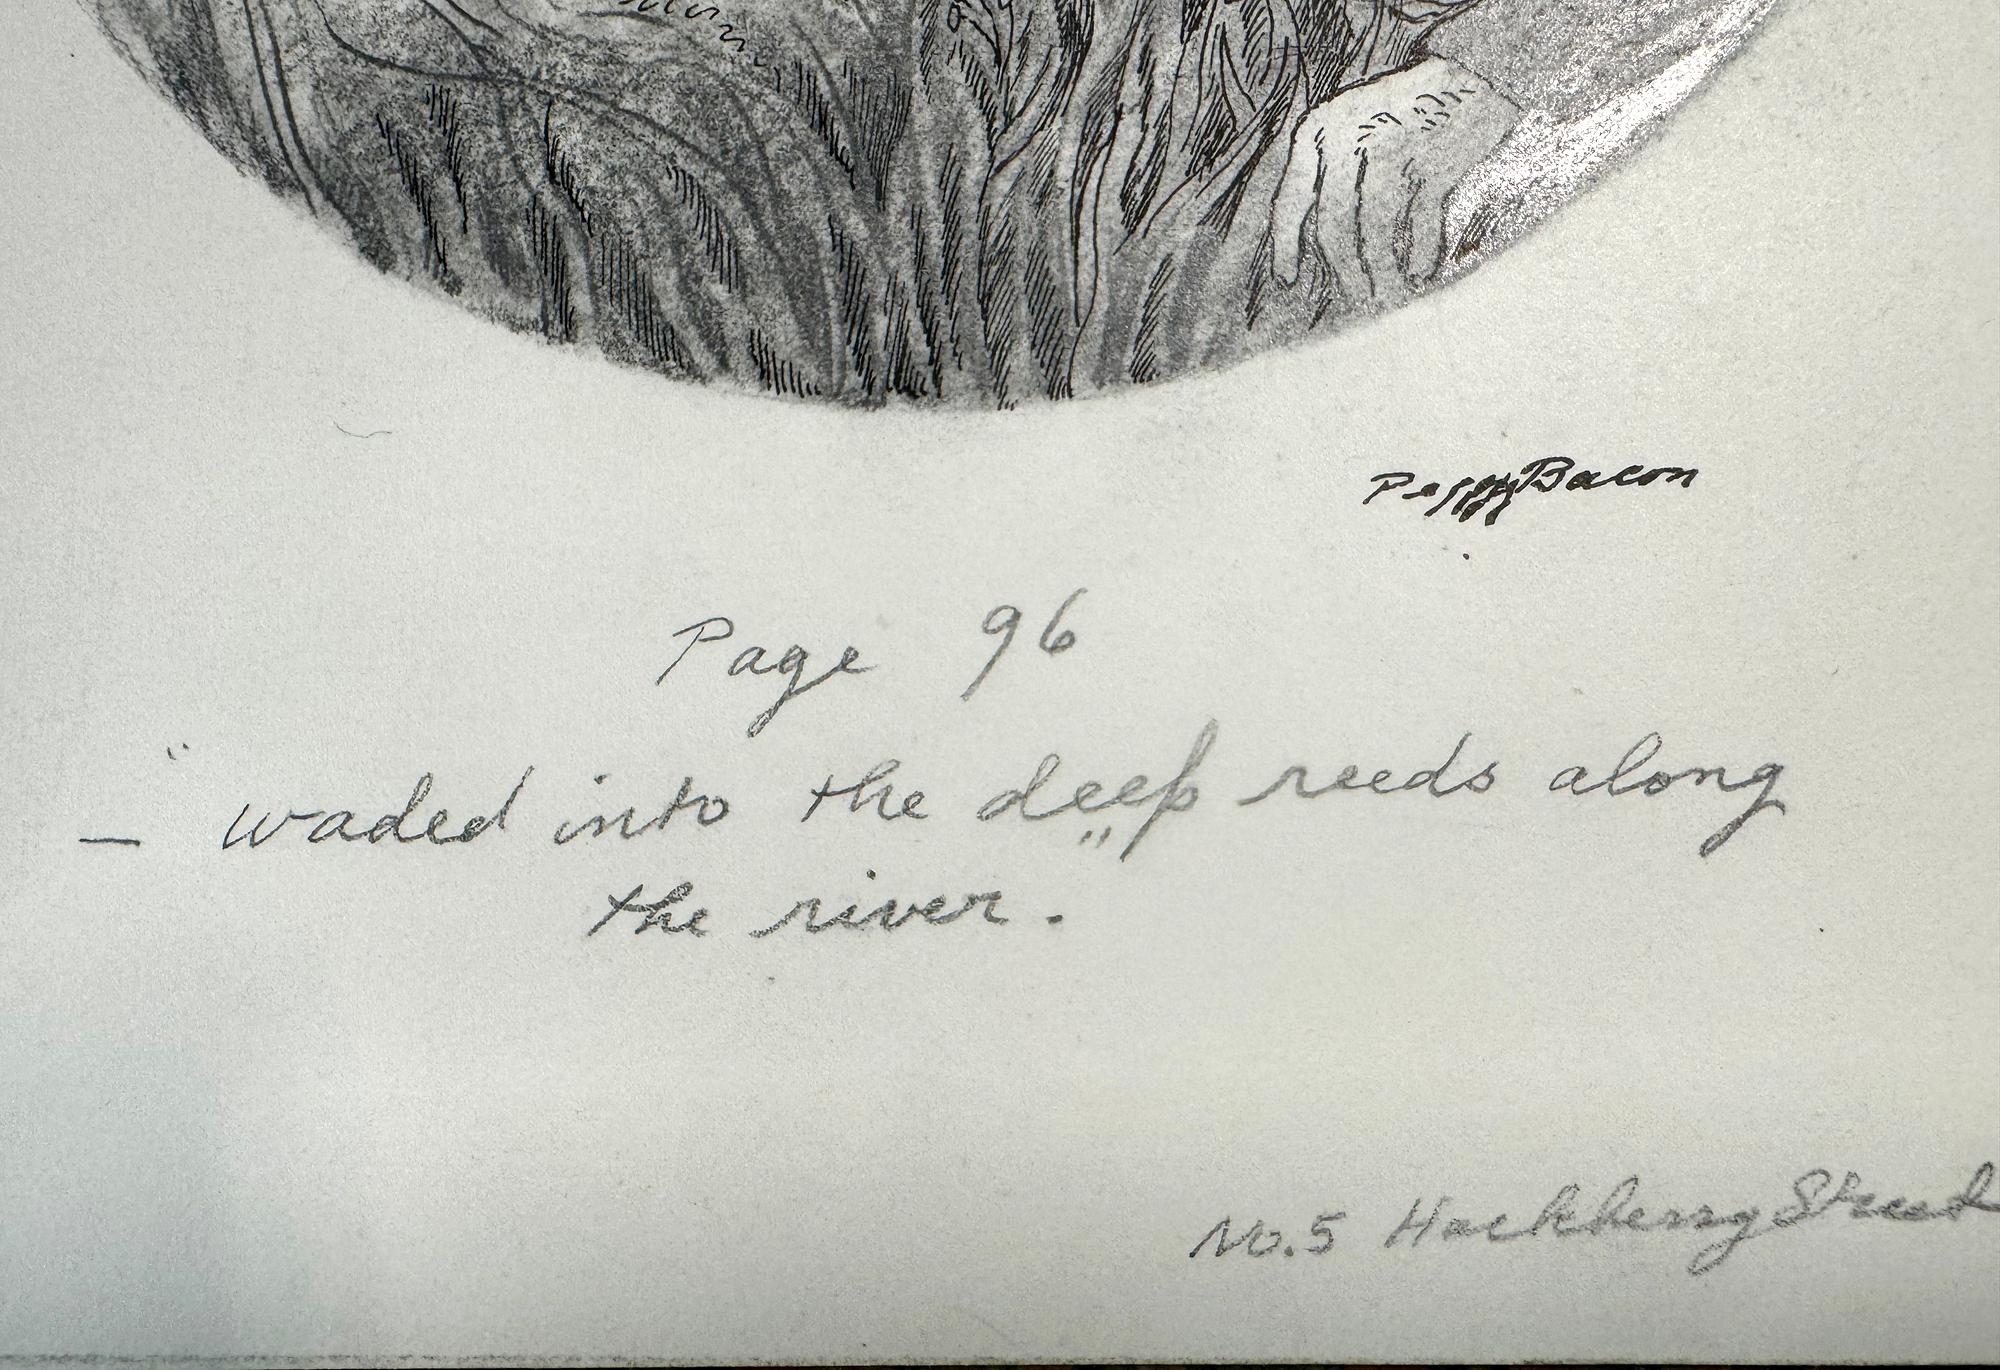 Peggy Bacon
Page 96
— " waded into the deep reeds along
the river. "
No. 5 Hackberry Street